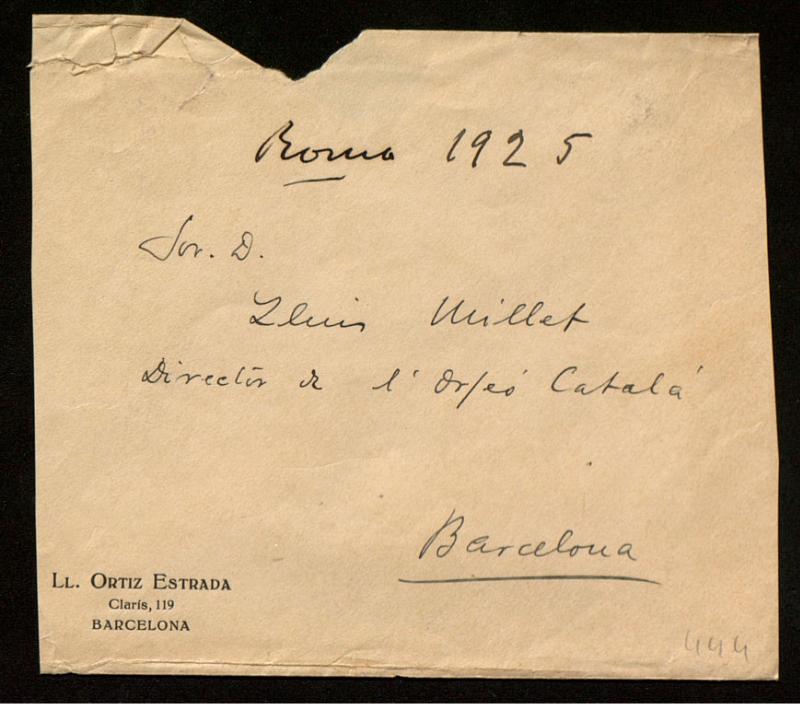 Roma 1925
Sor. D.
Lluis Millet
Director de l'Orfeó Catalá
Barcelona
LL. ORTIZ ESTRADA
Clarís, 119
BARCELONA
444